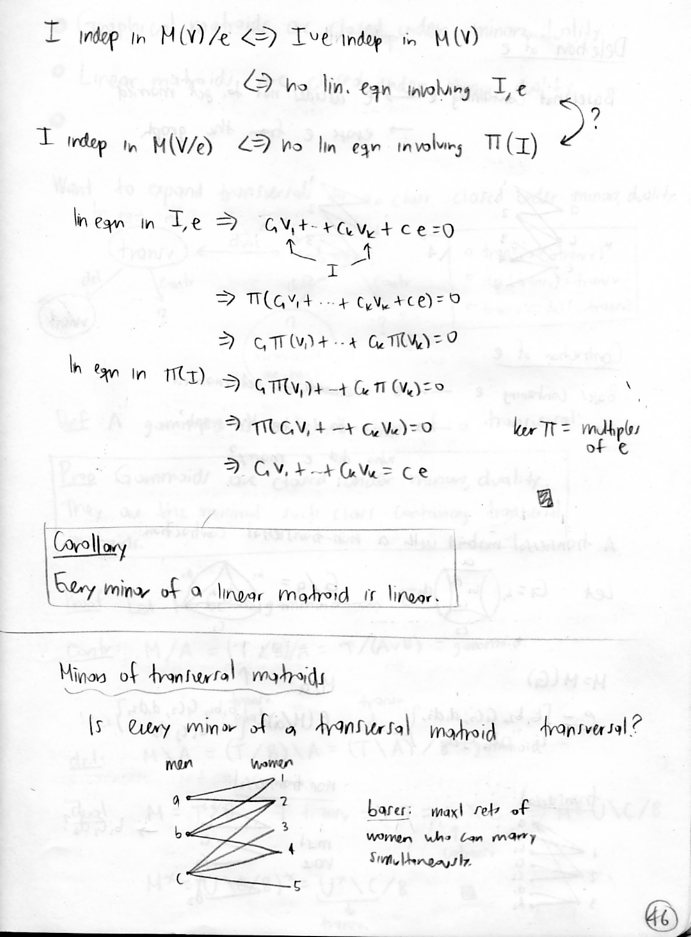 I indep in M(V)/e <=> I∪e indep in M(V)
<=> no lin. eqn involving I, e
?
I indep in M(V/e) <=> no lin eqn involving π(I)
lin eqn in I, e => C₁V₁ + ·· + CₖVₖ + ce = 0
I
=> π(C₁V₁ + ··· + CₖVₖ + ce) = 0
=> C₁π(V₁) + ·· + Cₖπ(Vₖ) = 0
lin eqn in π(I) => C₁π(V₁) + ·· + Cₖπ(Vₖ) = 0
=> π(C₁V₁ + ·· + CₖVₖ) = 0 ker π = multiples
of e
=> C₁V₁ + ·· + CₖVₖ = ce
Corollary
Every minor of a linear matroid is linear.
Minors of transversal matroids
Is every minor of a transversal matroid transversal?
men women
1
a 2
3
b 4
c 5
bases: maxl sets of
women who can marry
simultaneously.
46